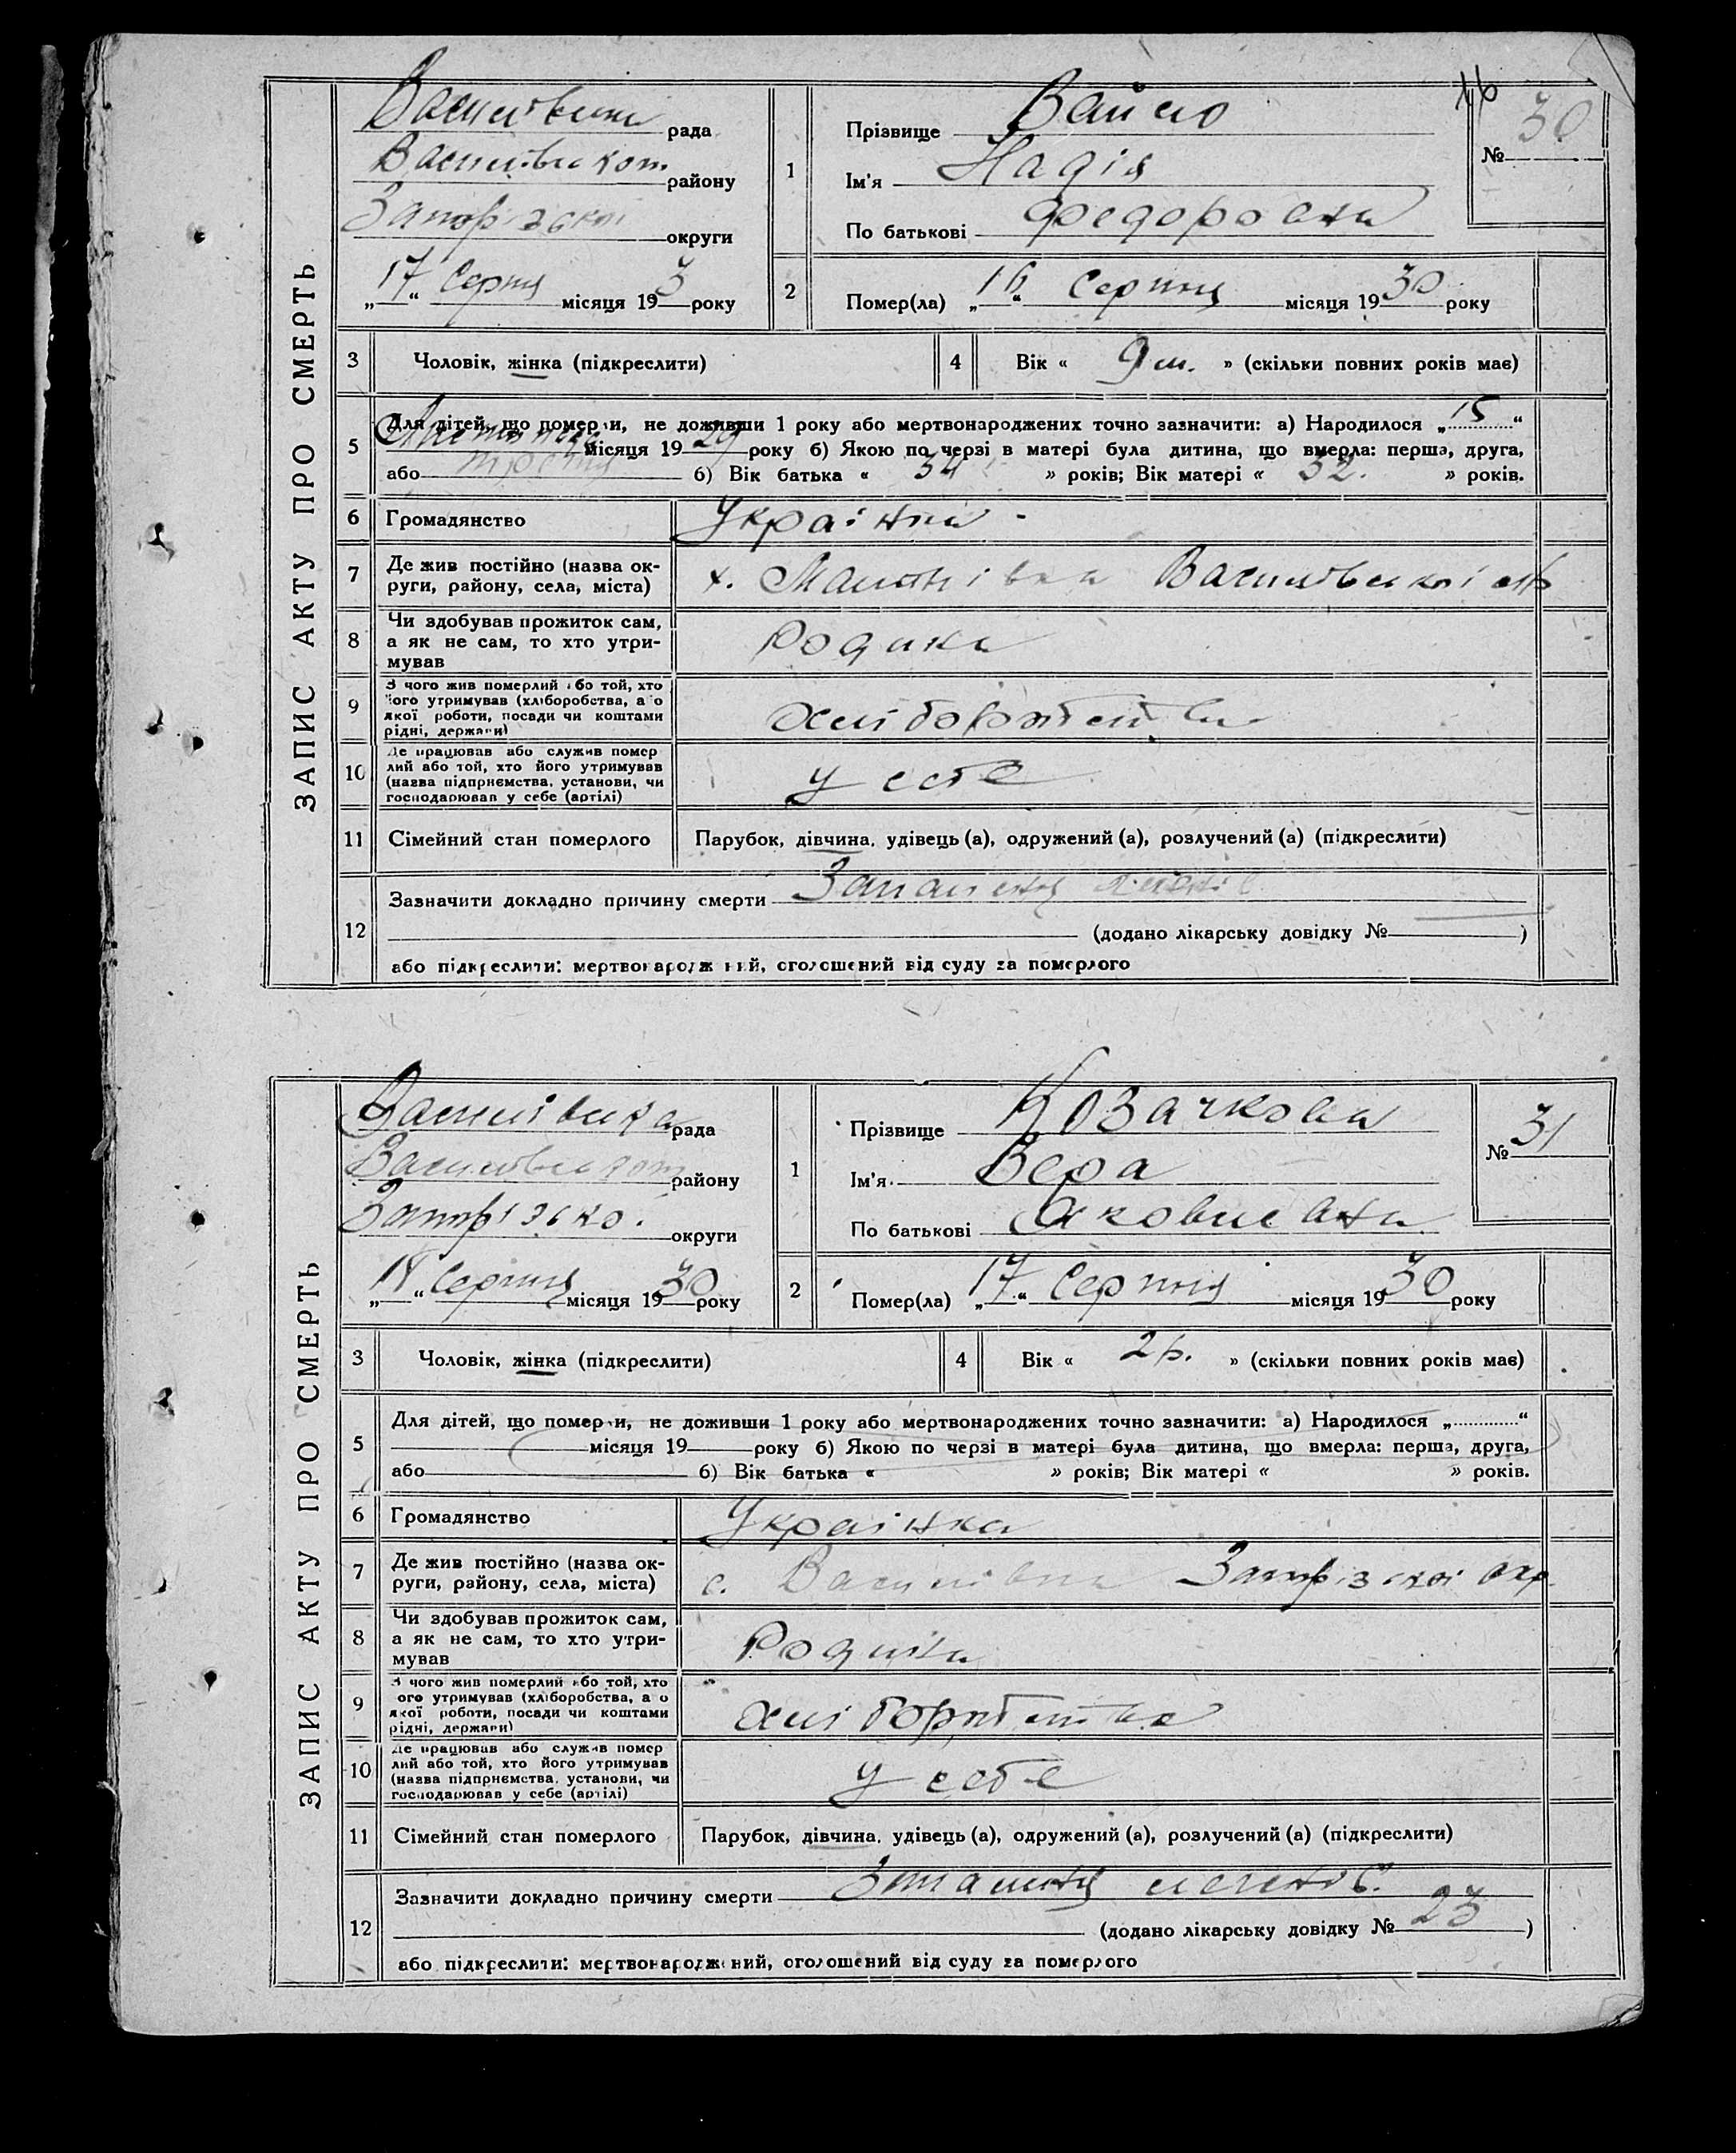 16
ЗАПИС АКТУ ПРО СМЕРТЬ
Василівська рада
Василівського району
Запорізької округи
„17“ Серпня місяця 193 року
1
Прізвище
Ім'я Надія
По батькові Федоровна
№ 30
2
Помер(ла) „16“ Серпня місяця 1930 року
3 Чоловік, жінка (підкреслити)
4 Вік « 9 м. » (скільки повних років має)
5 Для дітей, що померли, не доживши 1 року або мертвонароджених точно зазначити: а) Народилося „15“
Листопада місяця 1929 року б) Якою по черзі в матері була дитина, що вмерла: перша, друга,
або третя б) Вік батька « 34 » років; Вік матері « 32. » років.
6 Громадянство Українка
7 Де жив постійно (назва ок-
руги, району, села, міста) х. Василівської
8 Чи здобував прожиток сам,
а як не сам, то хто утри-
мував Родина
9 З чого жив померлий або той, хто
його утримував (хліборобства, або
якої роботи, посади чи коштами
рідні, держави) хліборобства
10 Де працював або служив помер
лий або той, хто його утримував
(назва підприємства, установи, чи
господарював у себе (артілі) у себе
11 Сімейний стан померлого Парубок, дівчина, удівець (а), одружений (а), розлучений (а) (підкреслити)
12 Зазначити докладно причину смерти Запалення легенів
(додано лікарську довідку № )
або підкреслити: мертвонароджений, оголошений від суду за померлого
ЗАПИС АКТУ ПРО СМЕРТЬ
Василівська рада
Василівського району
Запорізько. округи
„18“ Серпня місяця 1930 року
1
Прізвище Козачкова
Ім'я Вера
По батькові Яковлевна
№ 31
2
Помер(ла) „17“ Серпня місяця 1930 року
3 Чоловік, жінка (підкреслити)
4 Вік « 2 р. » (скільки повних років має)
5 Для дітей, що померли, не доживши 1 року або мертвонароджених точно зазначити: а) Народилося „ “
місяця 19 року б) Якою по черзі в матері була дитина, що вмерла: перша, друга,
або б) Вік батька « » років; Вік матері « » років.
6 Громадянство Українка
7 Де жив постійно (назва ок-
руги, району, села, міста) с. Василівка Запорізської окр
8 Чи здобував прожиток сам,
а як не сам, то хто утри-
мував Родина
9 З чого жив померлий або той, хто
його утримував (хліборобства, або
якої роботи, посади чи коштами
рідні, держави) хліборобства
10 Де працював або служив помер
лий або той, хто його утримував
(назва підприємства, установи, чи
господарював у себе (артілі) у себе
11 Сімейний стан померлого Парубок, дівчина, удівець (а), одружений (а), розлучений (а) (підкреслити)
12 Зазначити докладно причину смерти Запалення легенів.
(додано лікарську довідку № 23 )
або підкреслити: мертвонароджений, оголошений від суду за померлого